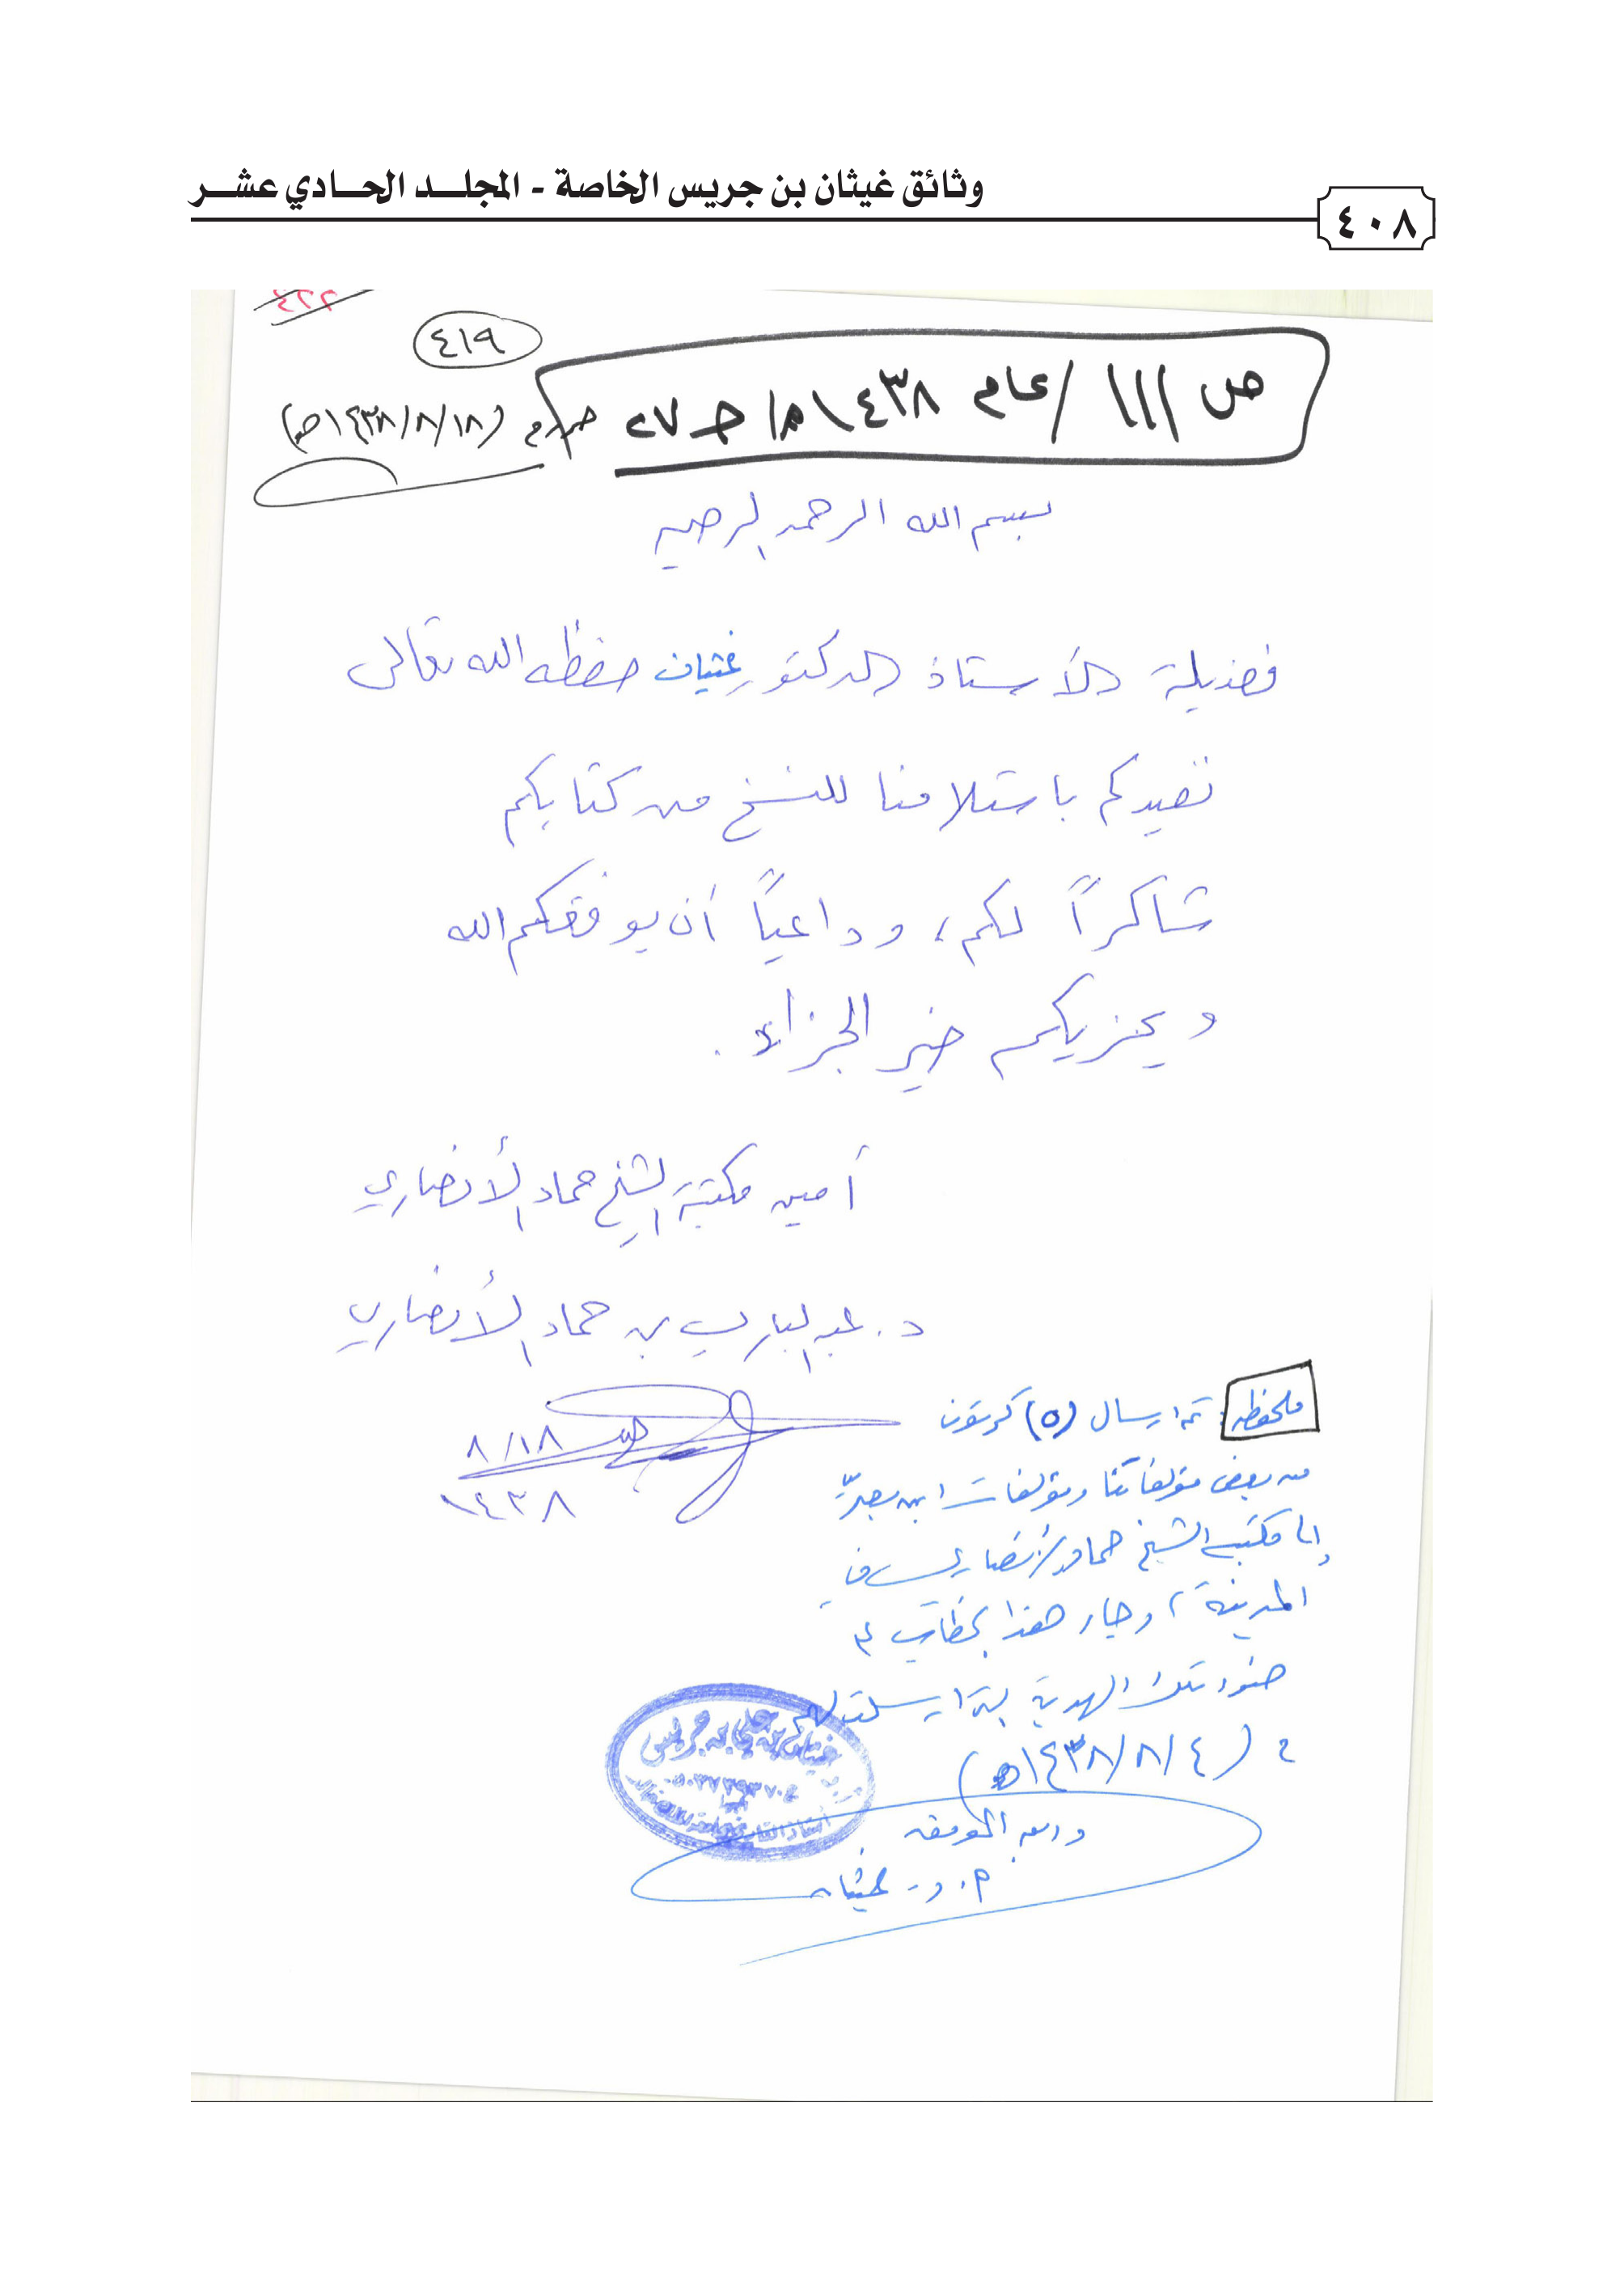 وثائق غيثان بن جريس الخاصة - المجلد الحادي عشر
٤٠٨
٤٢٢
٤١٩
ص ١١١ / عام ١٤٣٨هـ / جـ ٢٧
(١٤٣٨/٨/١٨هـ)
بسم الله الرحمن الرحيم
فضيلة الأستاذ الدكتور غيثان حفظه الله تعالى
نفيدكم باستلامنا للنسخ من كتابكم
شاكراً لكم، وداعياً أن يوفقكم الله
ويجزيكم خير الجزاء.
أمين مكتبة الشيخ حماد الأنصاري
د. عبدالباري بن حماد الأنصاري
٨/١٨
١٤٣٨
ملحظة: تم ارسال (٥) كرتون
من بعض مؤلفاتنا ومؤلفات
إلى مكتبة الشيخ حماد الأنصاري في
المدينة، وجاء هذا الخطاب
تلك الهدية التي ارسلت لهم
(١٤٣٨/٨/٤هـ)
والله الموفق
أ.د. غيثان
غيثان بن علي بن جريس